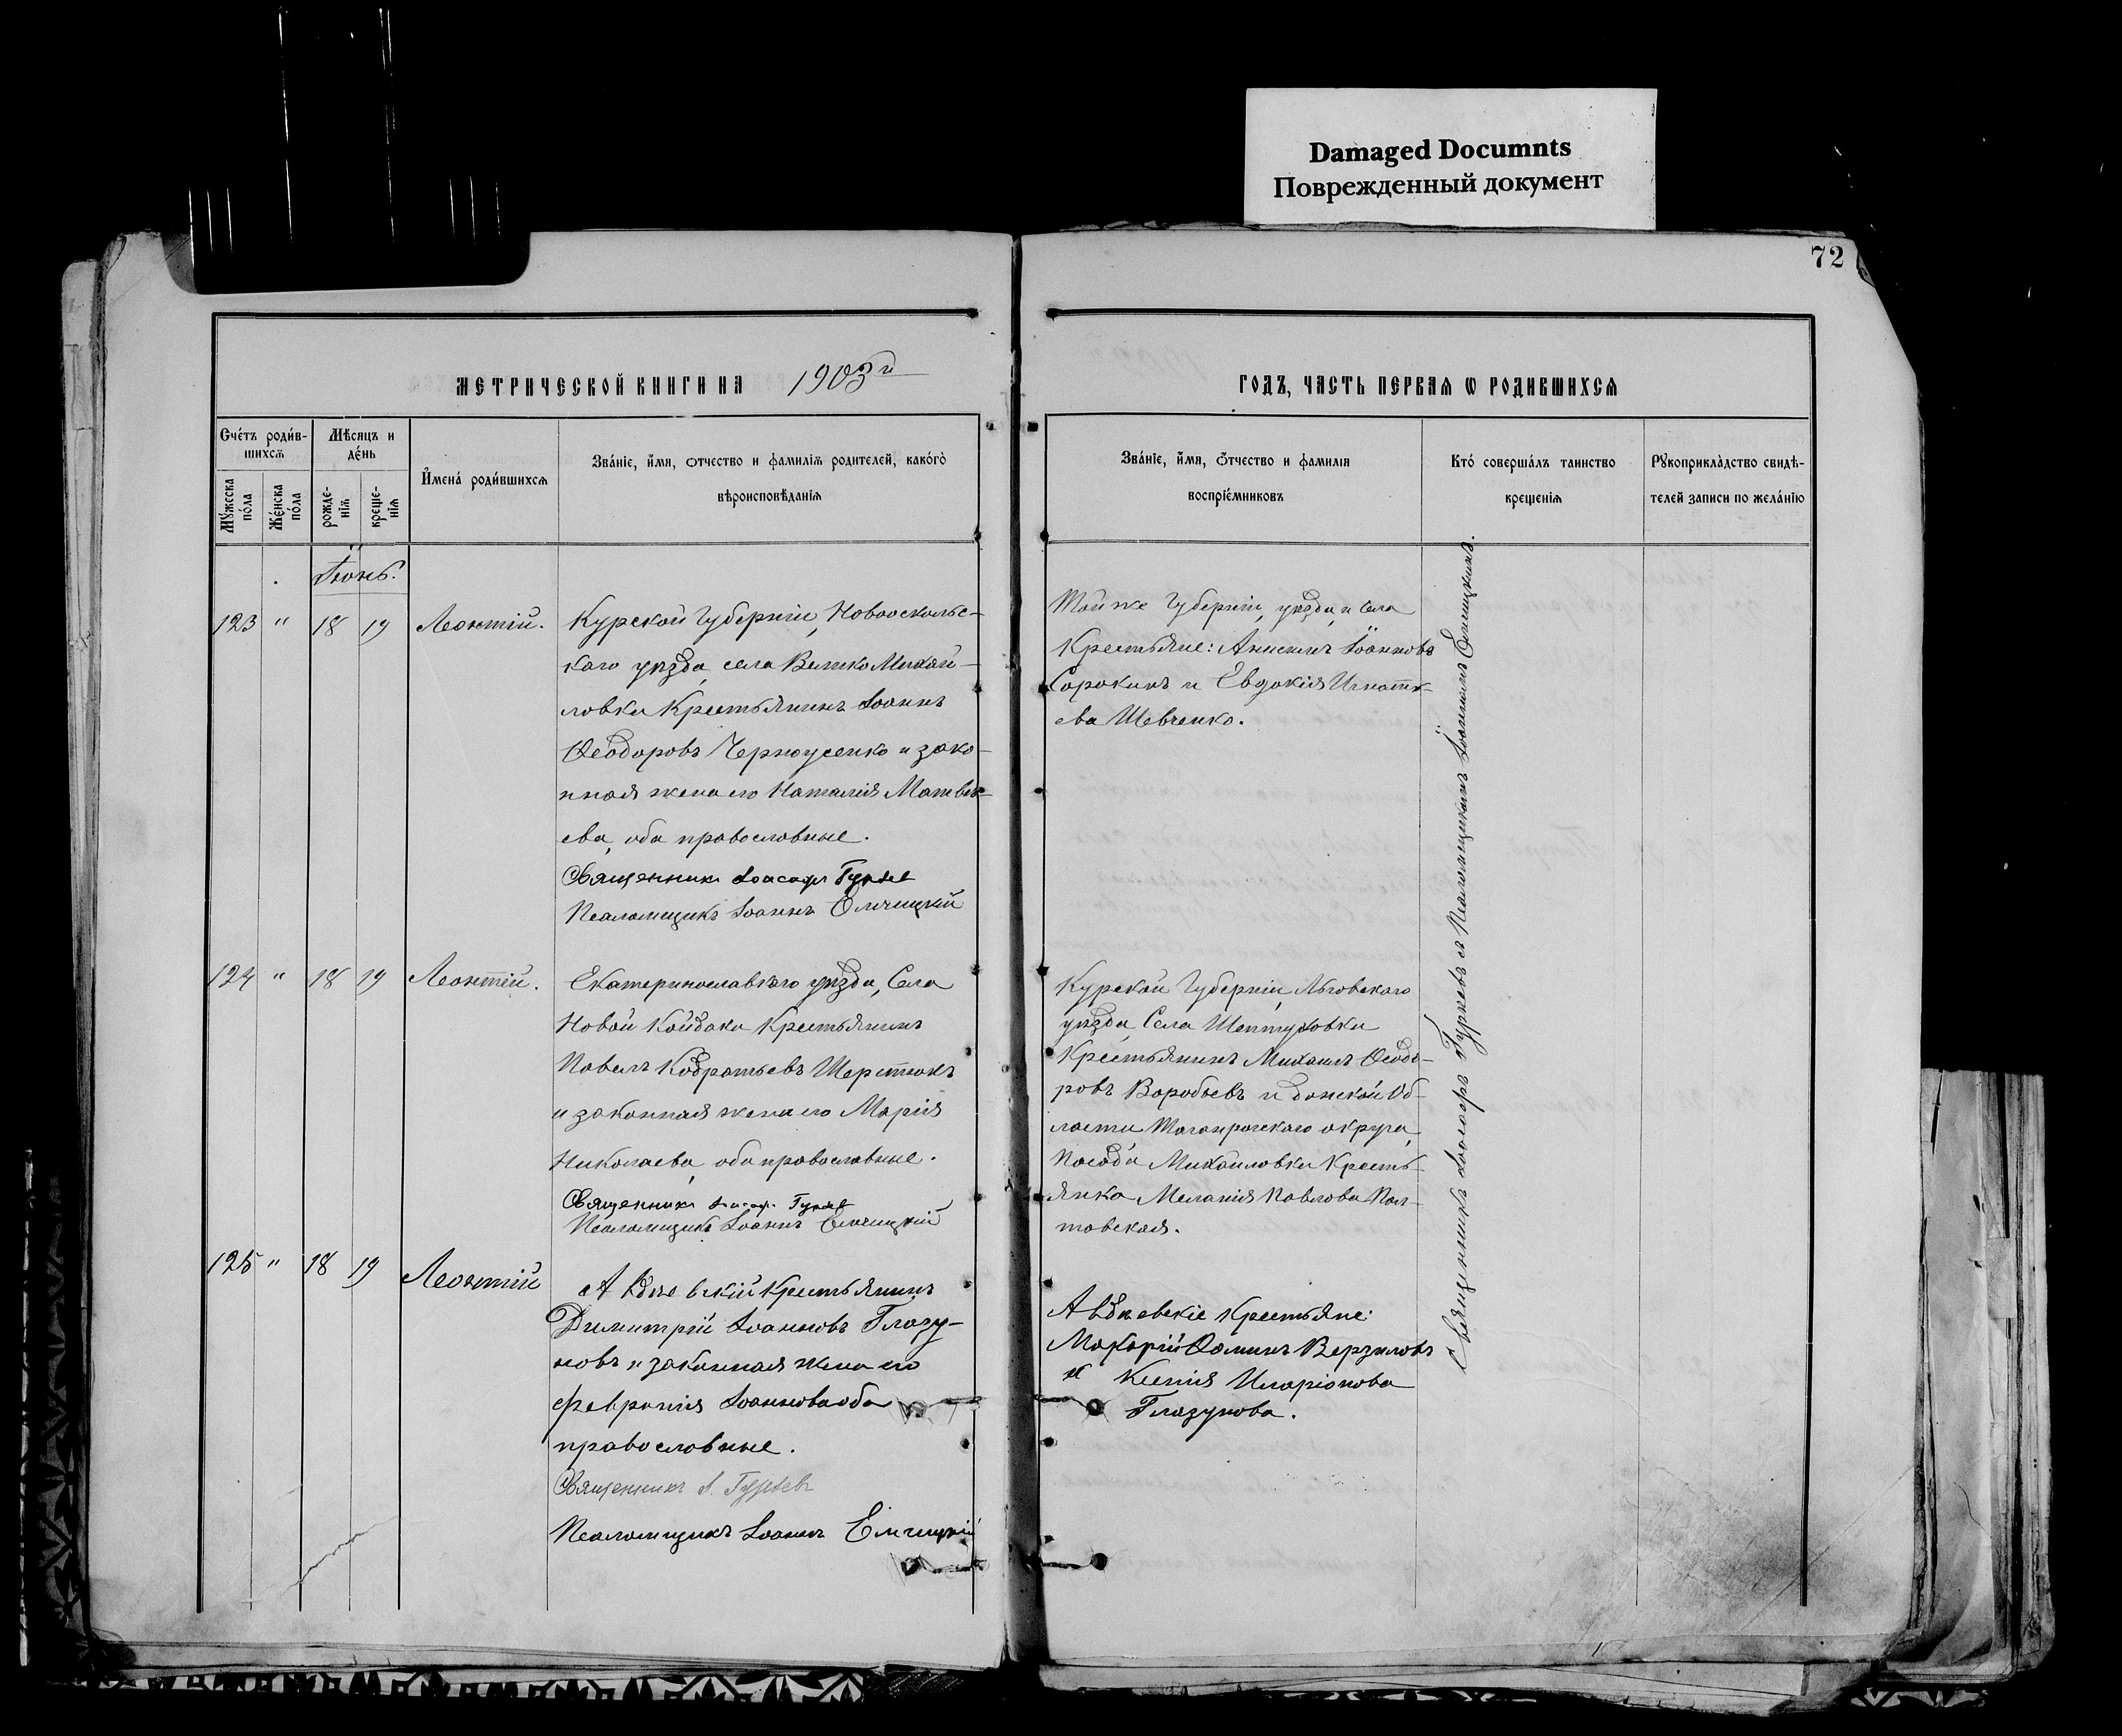 Damaged Documnts
Поврежденный документ
72
МЕТРИЧЕСКОЙ КНИГИ НА 1903й
ГОДЪ, ЧАСТЬ ПЕРВАЯ Ѡ РОДИВШИХСЯ
Счётъ родив-
шихся
Мужеска пола
Женска пола
Мѣсяцъ и день
рожде-
нія
креще-
нія
Имена родившихся
Званіе, имя, отчество и фамилія родителей, какого
вѣроисповѣданія
Званіе, имя, отчество и фамилія
воспріемниковъ
Кто совершалъ таинство
крещенія
Рукоприкладство свидѣ-
телей записи по желанію
Іюнь.
123 " 18 19 Леонтій.
Курской Губерніи, Новооскольс-
каго уѣзда, села Велико Михай-
ловки Крестьянинъ Іоаннъ
Ѳеодоровъ Черноусенко и зако-
нная жена его Наталія Матвѣ-
ева, оба православные.
Священникъ Іоасафъ Гурьев
Псаломщикъ Іоаннъ Елчицкій
Той же Губерніи, уѣзда, и села
Крестьяне: Анисимъ Іоанновъ
Сорокинъ и Евдокія Игнатѣ-
ева Шевченко.
124 " 18 19 Леонтій.
Екатеринославскаго уѣзда, Села
Новой Койдаки Крестьянинъ
Павелъ Кодратьевъ Шерстюкъ
и законная жена его Марія
Николаева, оба православные.
Священникъ Іоасаф Гурьев
Псаломщикъ Іоаннъ Елчицкій
Курской Губерніи, Льговскаго
уѣзда, Села Шептуховки
Крестьянинъ Михаилъ Ѳеодо-
ровъ Воробьевъ и Донской Об-
ласти Таганрогскаго округа,
Посада Михайловки Кресть-
янка Меланія Павлова Пол-
тавская.
125 " 18 19 Леонтій
Авдѣевскій Крестьянинъ
Димитрій Іоанновъ Глазу-
новъ и законная жена его
Февронія Іоаннова оба
православные.
Священникъ І. Гурьевъ
Псаломщикъ Іоаннъ Елчицкій
Авдѣевскіе Крестьяне:
Макарій Ѳоминъ Верзиловъ
и Ксенія Иларіонова
Глазунова.
Священникъ Іоасафъ Гурьевъ съ Псаломщикомъ Іоанномъ Елчицкимъ.